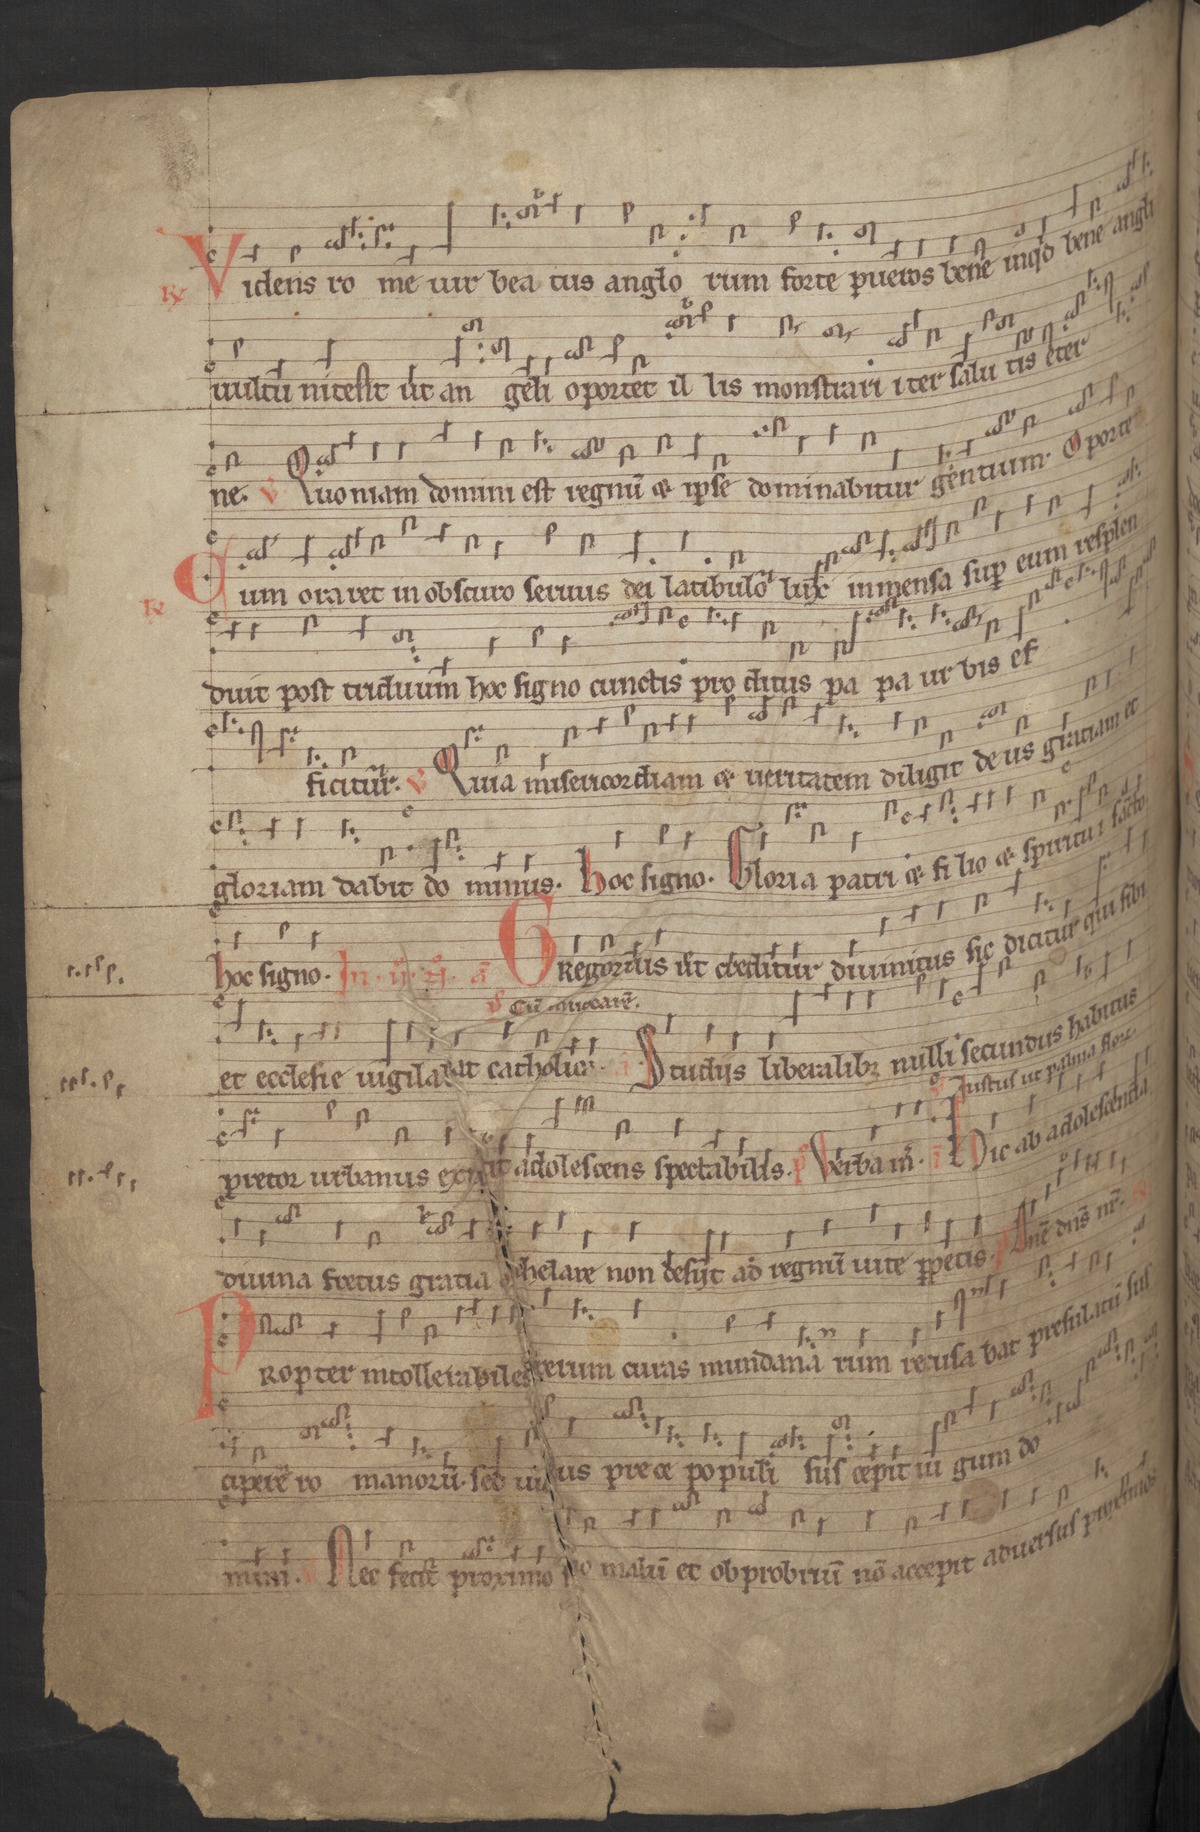 ℟ Videns ro me uir bea tus anglo rum forte pueros bene inq̇d bene angli
uultū nitescit ut an geli oportet il lis monstrari iter salu tis eter
ne. ℣ Quoniam domini est regnū & ipse dominabitur gentium. Oporte
℟ Cum oraret in obscuro seruus dei latibulo lux inmensa sup eum resplen
duit post triduum hoc signo cunctis pro ditus pa pa ur bis ef
ficitur. ℣ Quia misericordiam & ueritatem diligit de us gratiam et
gloriam dabit do minus. hoc signo. Gloria patri & fi lio & spiritui sācto
hoc signo. In .ij. N. a Gregorius ut creditur diuinitus sic dicitur qui sibi
℣ Cū inuocarē.
et ecclesie uigilarat catholice. a Studijs liberalibꝫ nulli secundus habitus
p Iustus ut palma flore.
pretor urbanus extitit adolescens spectabilis. p Verba m̄. a Hic ab adolescentia
diuina fretus gratia celare non desijt ad regnū uite ꝑpetis. p Dn̄e dn̄s nr̄. ℟
Propter intollerabiles rerum curas mundana rum recusa bat presulatū sus
cipere ro manorū. sed uictus prece populi sus cepit iu gum do
mini. ℣ Nec fecit proximo suo malū et obprobriū nō accepit aduersus proximos